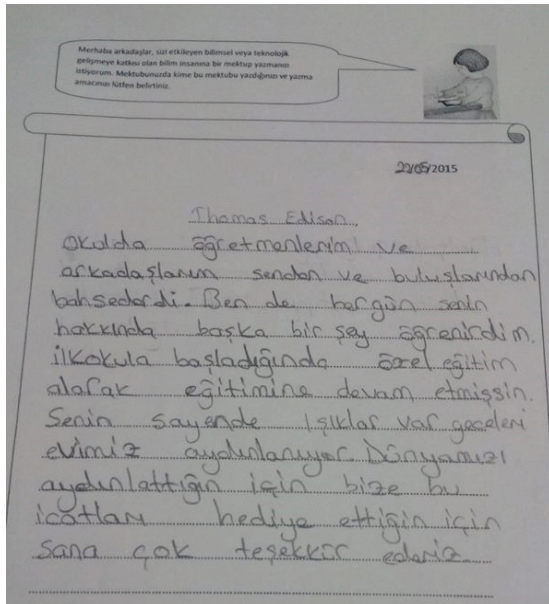 Merhaba arkadaşlar, sizi etkileyen bilimsel veya teknolojik
gelişmeye katkısı olan bilim insanına bir mektup yazmanızı
istiyorum. Mektubunuzda kime bu mektubu yazdığınızı ve yazma
amacınızı lütfen belirtiniz.
22/05/2015
Thomas Edison,
Okulda öğretmenlerim ve
arkadaşlarım senden ve buluşlarından
bahsederdi. Ben de hergün senin
hakkında başka bir şey öğrenirdim.
İlkokula başladığında özel eğitim
alarak eğitimine devam etmişsin.
Senin sayende ışıklar var geceleri
evimiz aydınlanıyor. Dünyamızı
aydınlattığın için bize bu
icatları hediye ettiğin için
sana çok teşekkür ederiz